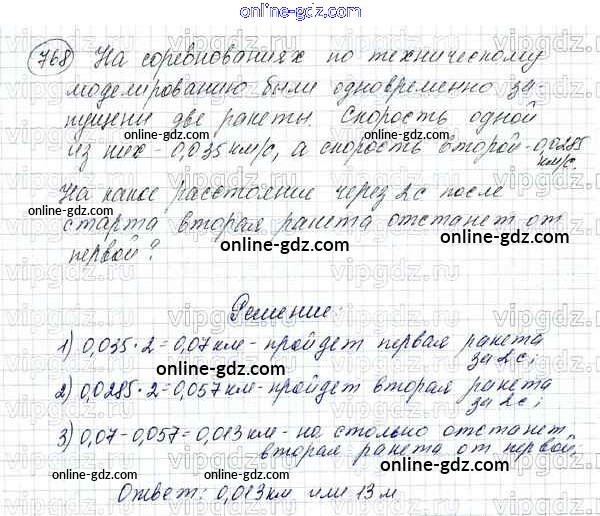 online-gdz.com
768 На соревнованиях по техническому
моделированию были одновременно за
пущены две ракеты. Скорость одной
online-gdz.com online-gdz.com
из них - 0,035 км/с, а скорость второй - 0,0285
км/с.
На какое расстояние через 2с после
online-gdz.com
старта вторая ракета отстанет от
online-gdz.com
первой?
Решение:
1) 0,035 · 2 = 0,07 км - пройдет первая ракета
за 2с;
online-gdz.com
2) 0,0285 · 2 = 0,057 км - пройдет вторая ракета
за 2с;
online-gdz.com
3) 0,07 - 0,057 = 0,013 км - на столько отстанет
вторая ракета от первой.
online-gdz.com online-gdz.com
Ответ: 0,013 км или 13 м
online-gdz.com